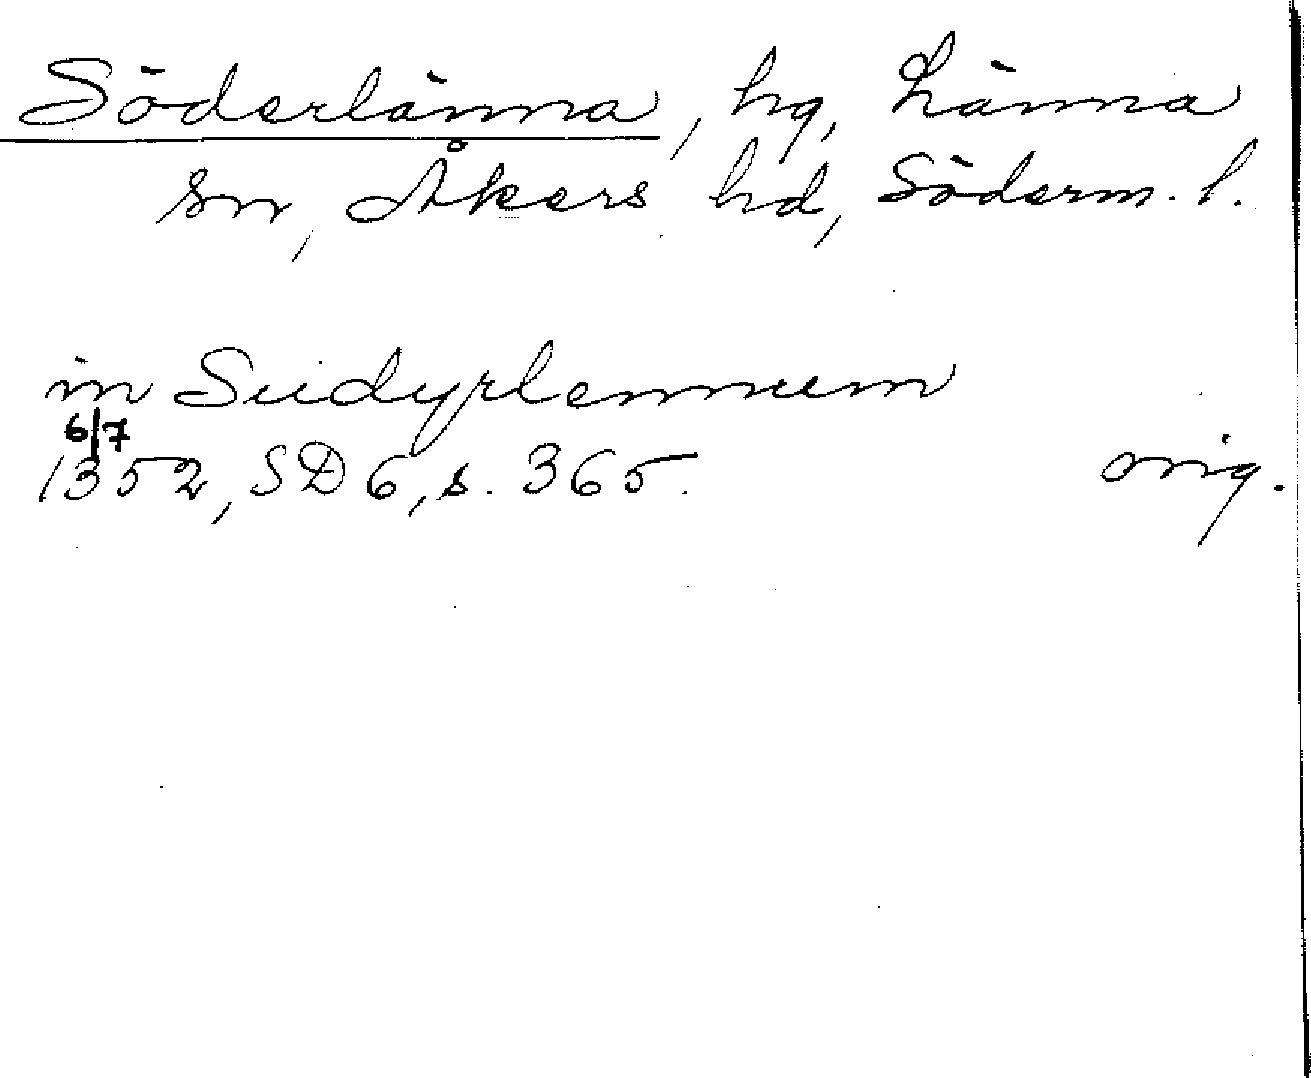 Söderlänna, hg, Länna
sn, Åkers hd, Söderm. l.
in Sudyrlennum
6/7
1352, SD 6, s. 365.
orig.